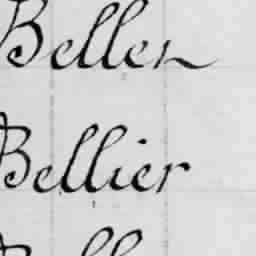 Beller
Bellier